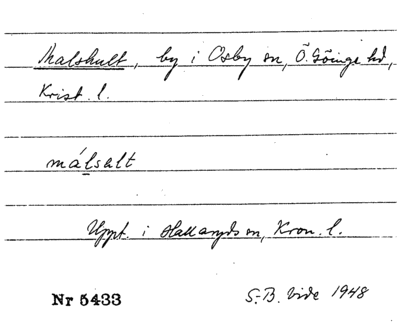 Malshult, by i Osby sn, Ö. Göinge hd,
Krist. l.
målsalt
Uppt. i Hallaryds sn, Kron. l.
Nr 5433
S.-B. Vide 1948